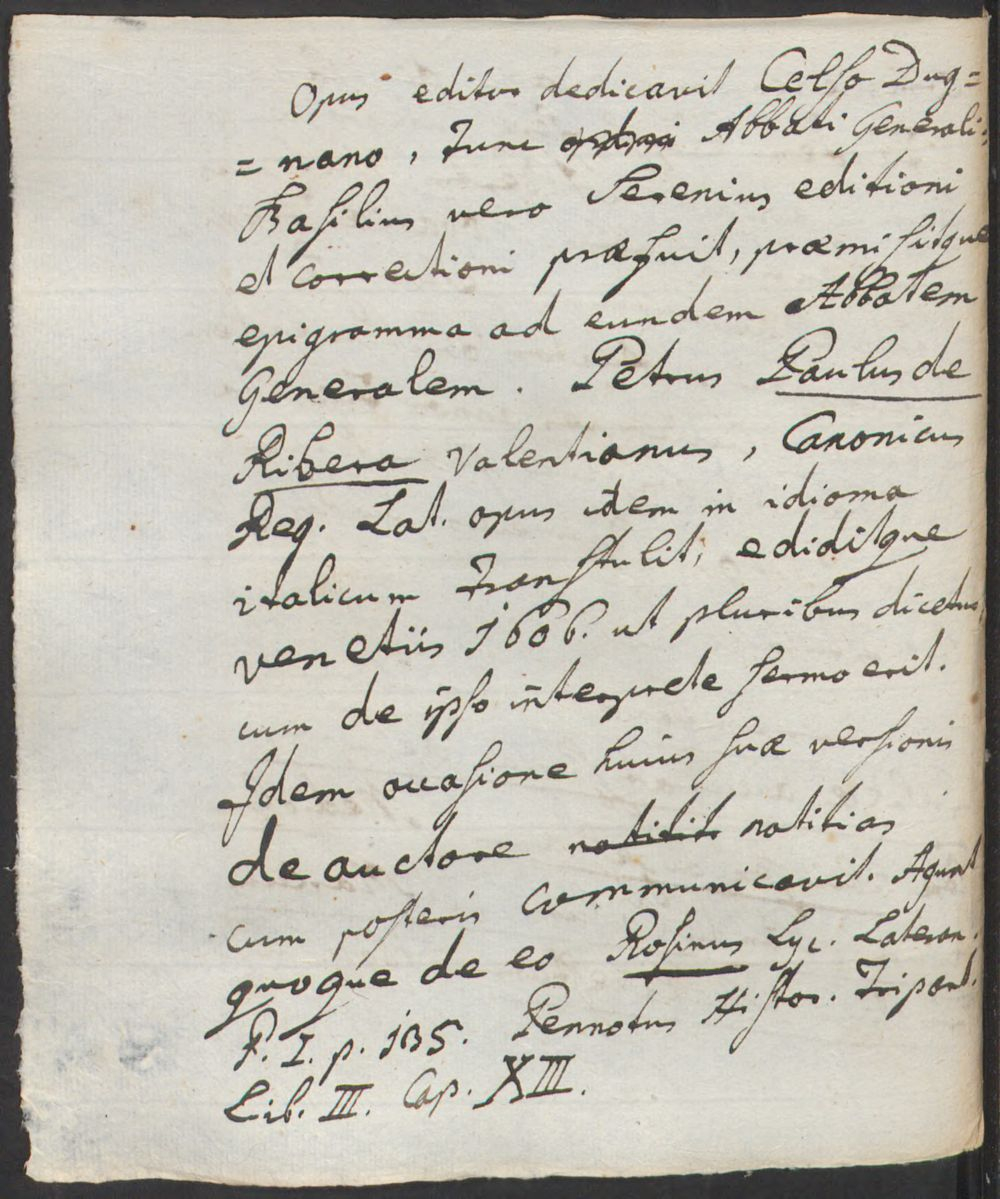 Opus editor dedicavit Celso Dug=
=nano, tunc Abbati Generali;
Basilius vero Serenius editioni
et correctioni præfuit, præmisitque
epigramma ad eundem Abbatem
Generalem. Petrus Paulus de
Ribera Valentianus, Canonicus
Reg. Lat. opus idem in idioma
italicum transtulit, ediditque
venetiis 1606. ut pluribus dicetur,
cum de ipso interprete sermo erit.
Idem occasione huius suæ versionis
de auctore notitias
cum posteris communicavit. Agunt
quoque de eo Rosinus Lyc. Lateran.
P. I. p. 135. Pennotus Histor. Tripart.
Lib. III. Cap. XIII.